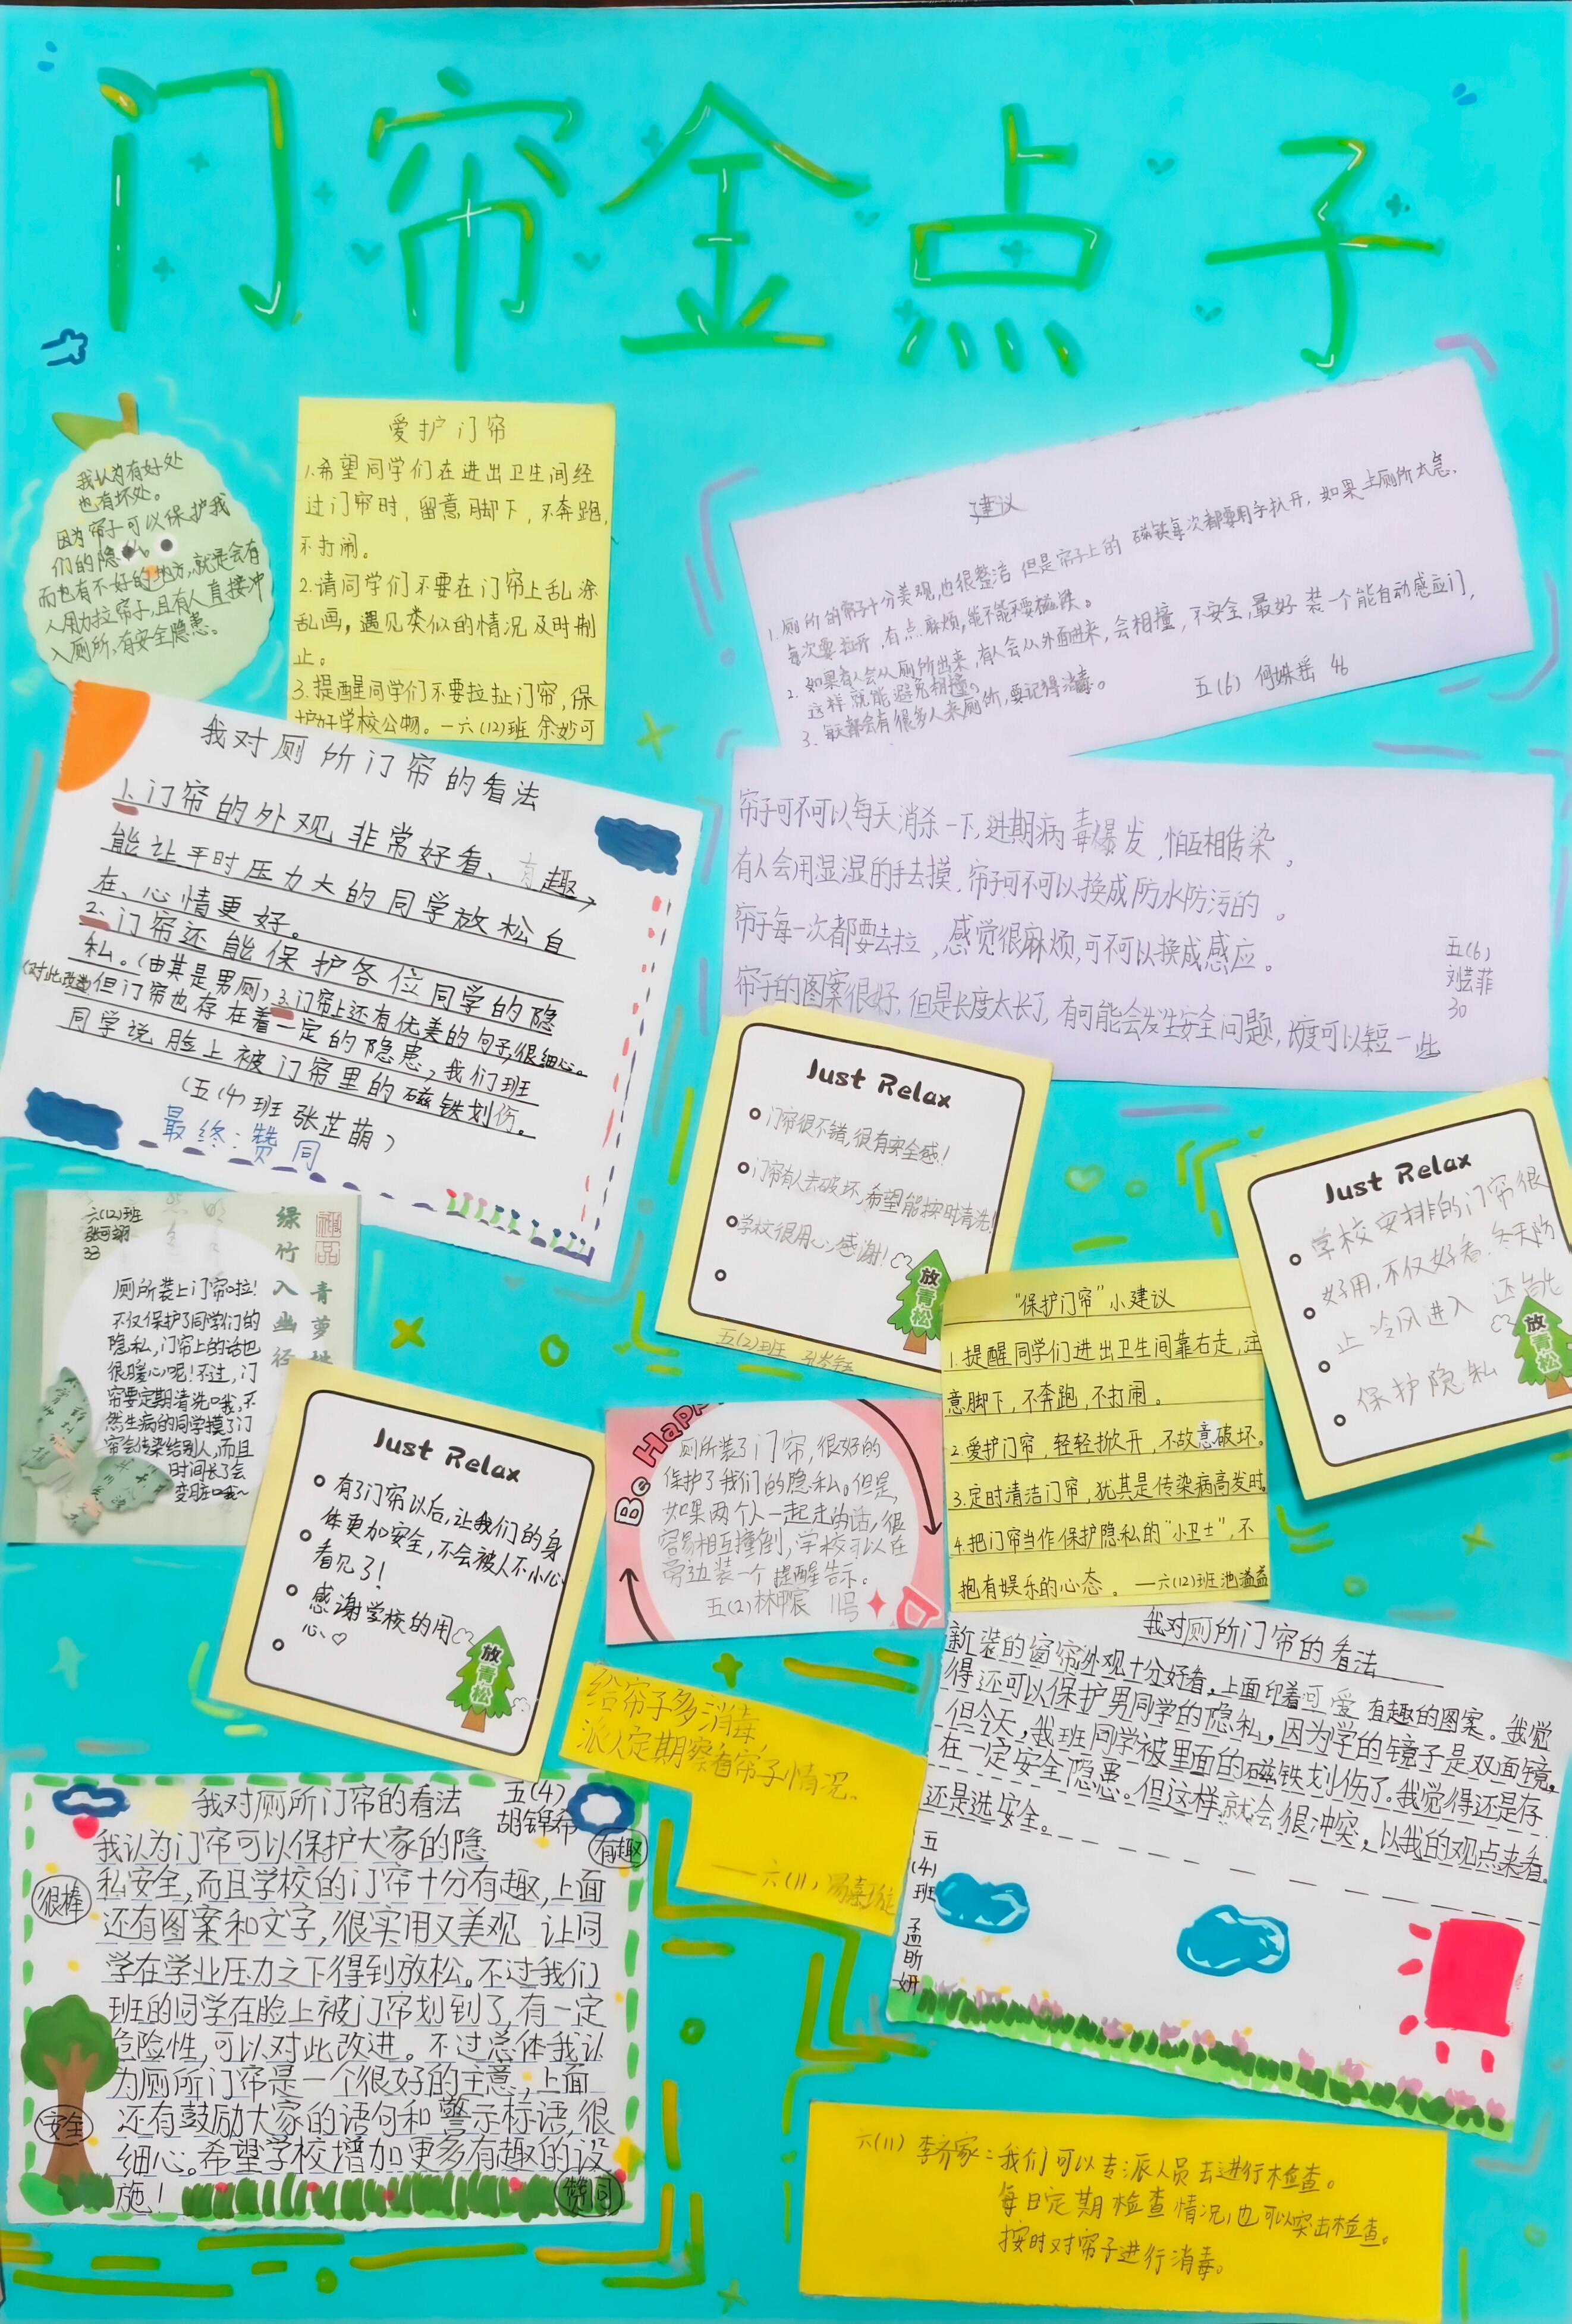 门帘金点子
我认为有好处
也有坏处。
因为帘子可以保护我
们的隐私。
而也有不好的地方,就是会有
人用力拉帘子,且有人直接冲
入厕所,有安全隐患。
爱护门帘
1.希望同学们在进出卫生间经
过门帘时,留意脚下,不奔跑,
不打闹。
2.请同学们不要在门帘上乱涂
乱画,遇见类似的情况及时制
止。
3.提醒同学们不要拉扯门帘,保
护好学校公物。一六(12)班 余妙可
建议
1.厕所的帘子十分美观,也很整洁 但是帘子上的 磁铁每次都要用手扒开,如果上厕所太急.
每次要拉开,有点麻烦,能不能不要磁铁。
2.如果有人会从厕所出来,有人会从外面进来,会相撞,不安全,最好 装一个能自动感应门,
这样就能避免相撞。
3.每天都会有很多人来厕所,要记得消毒。
五(6) 何姝瑶 46
我对厕所门帘的看法
1.门帘的外观非常好看、有趣
能让平时压力大的同学放松自
在、心情更好。
2.门帘还能保护各位同学的隐
私。(由其是男厕)3.门帘上还有优美的句子,很细心。
(对此改进)但门帘也存在着一定的隐患,我们班
同学说脸上被门帘里的磁铁划伤。
(五(4)班 张芷萌)
最终:赞同
帘子可不可以每天消杀一下,进期病毒爆发,怕互相传染。
有人会用湿湿的手去摸.帘子可不可以换成防水防污的。
帘子每一次都要去拉,感觉很麻烦,可不可以换成感应。
帘子的图案很好,但是长度太长了,有可能会发生安全问题,长度可以短一些
五(6)
刘芸菲
30
Just Relax
门帘很不错,很有安全感!
门帘有人去破坏,希望能按时清洗!
学校很用心,感谢!
放青松
五(2)班
Just Relax
学校安排的门帘很
好用,不仅好看.冬天防
止冷风进入 还能
保护隐私
放青松
六(12)班
张可翊
33
绿竹入幽径
青萝
厕所装上门帘啦!
不仅保护了同学们的
隐私,门帘上的话也
很暖心呢!不过,门
帘要定期清洗哦,不
然生病的同学摸了门
帘会传染给别人,而且
时间长了会
变脏哦~
Just Relax
有了门帘以后,让我们的身
体更加安全,不会被人不小心
看见了!
感谢学校的用
心♡
放青松
Be Happy
厕所装了门帘,很好的
保护了我们的隐私。但是,
如果两个人一起走的话,很
容易相互撞倒,学校可以在
旁边装一个提醒告示。
五(2)林申宸 11号
“保护门帘”小建议
1.提醒同学们进出卫生间靠右走,注
意脚下,不奔跑,不打闹。
2.爱护门帘,轻轻掀开,不故意破坏。
3.定时清洁门帘,犹其是传染病高发时.
4.把门帘当作保护隐私的“小卫士”,不
抱有娱乐的心态。一六(12)班池溢益
给帘子多消毒,
派人定期察看帘子情况。
——六(11)
我对厕所门帘的看法
新装的窗帘外观十分好看,上面印着可爱有趣的图案。我觉
得还可以保护男同学的隐私,因为学的镜子是双面镜。
但今天,我班同学被里面的磁铁划伤了。我觉得还是存
在一定安全隐患。但这样就会很冲突,以我的观点来看
还是选安全。
五(4)班 孟昕妍
我对厕所门帘的看法
五(4)
胡锦希
我认为门帘可以保护大家的隐
私安全,而且学校的门帘十分有趣,上面
还有图案和文字,很实用又美观 让同
学在学业压力之下得到放松。不过我们
班的同学在脸上被门帘划到了,有一定
危险性,可以对此改进。不过总体我认
为厕所门帘是一个很好的主意,上面
还有鼓励大家的语句和警示标语,很
细心。希望学校增加更多有趣的设
施!
有趣
很棒
安全
赞同
六(11) 李齐家:我们可以专派人员去进行检查。
每日定期检查情况,也可以突击检查。
按时对帘子进行消毒。